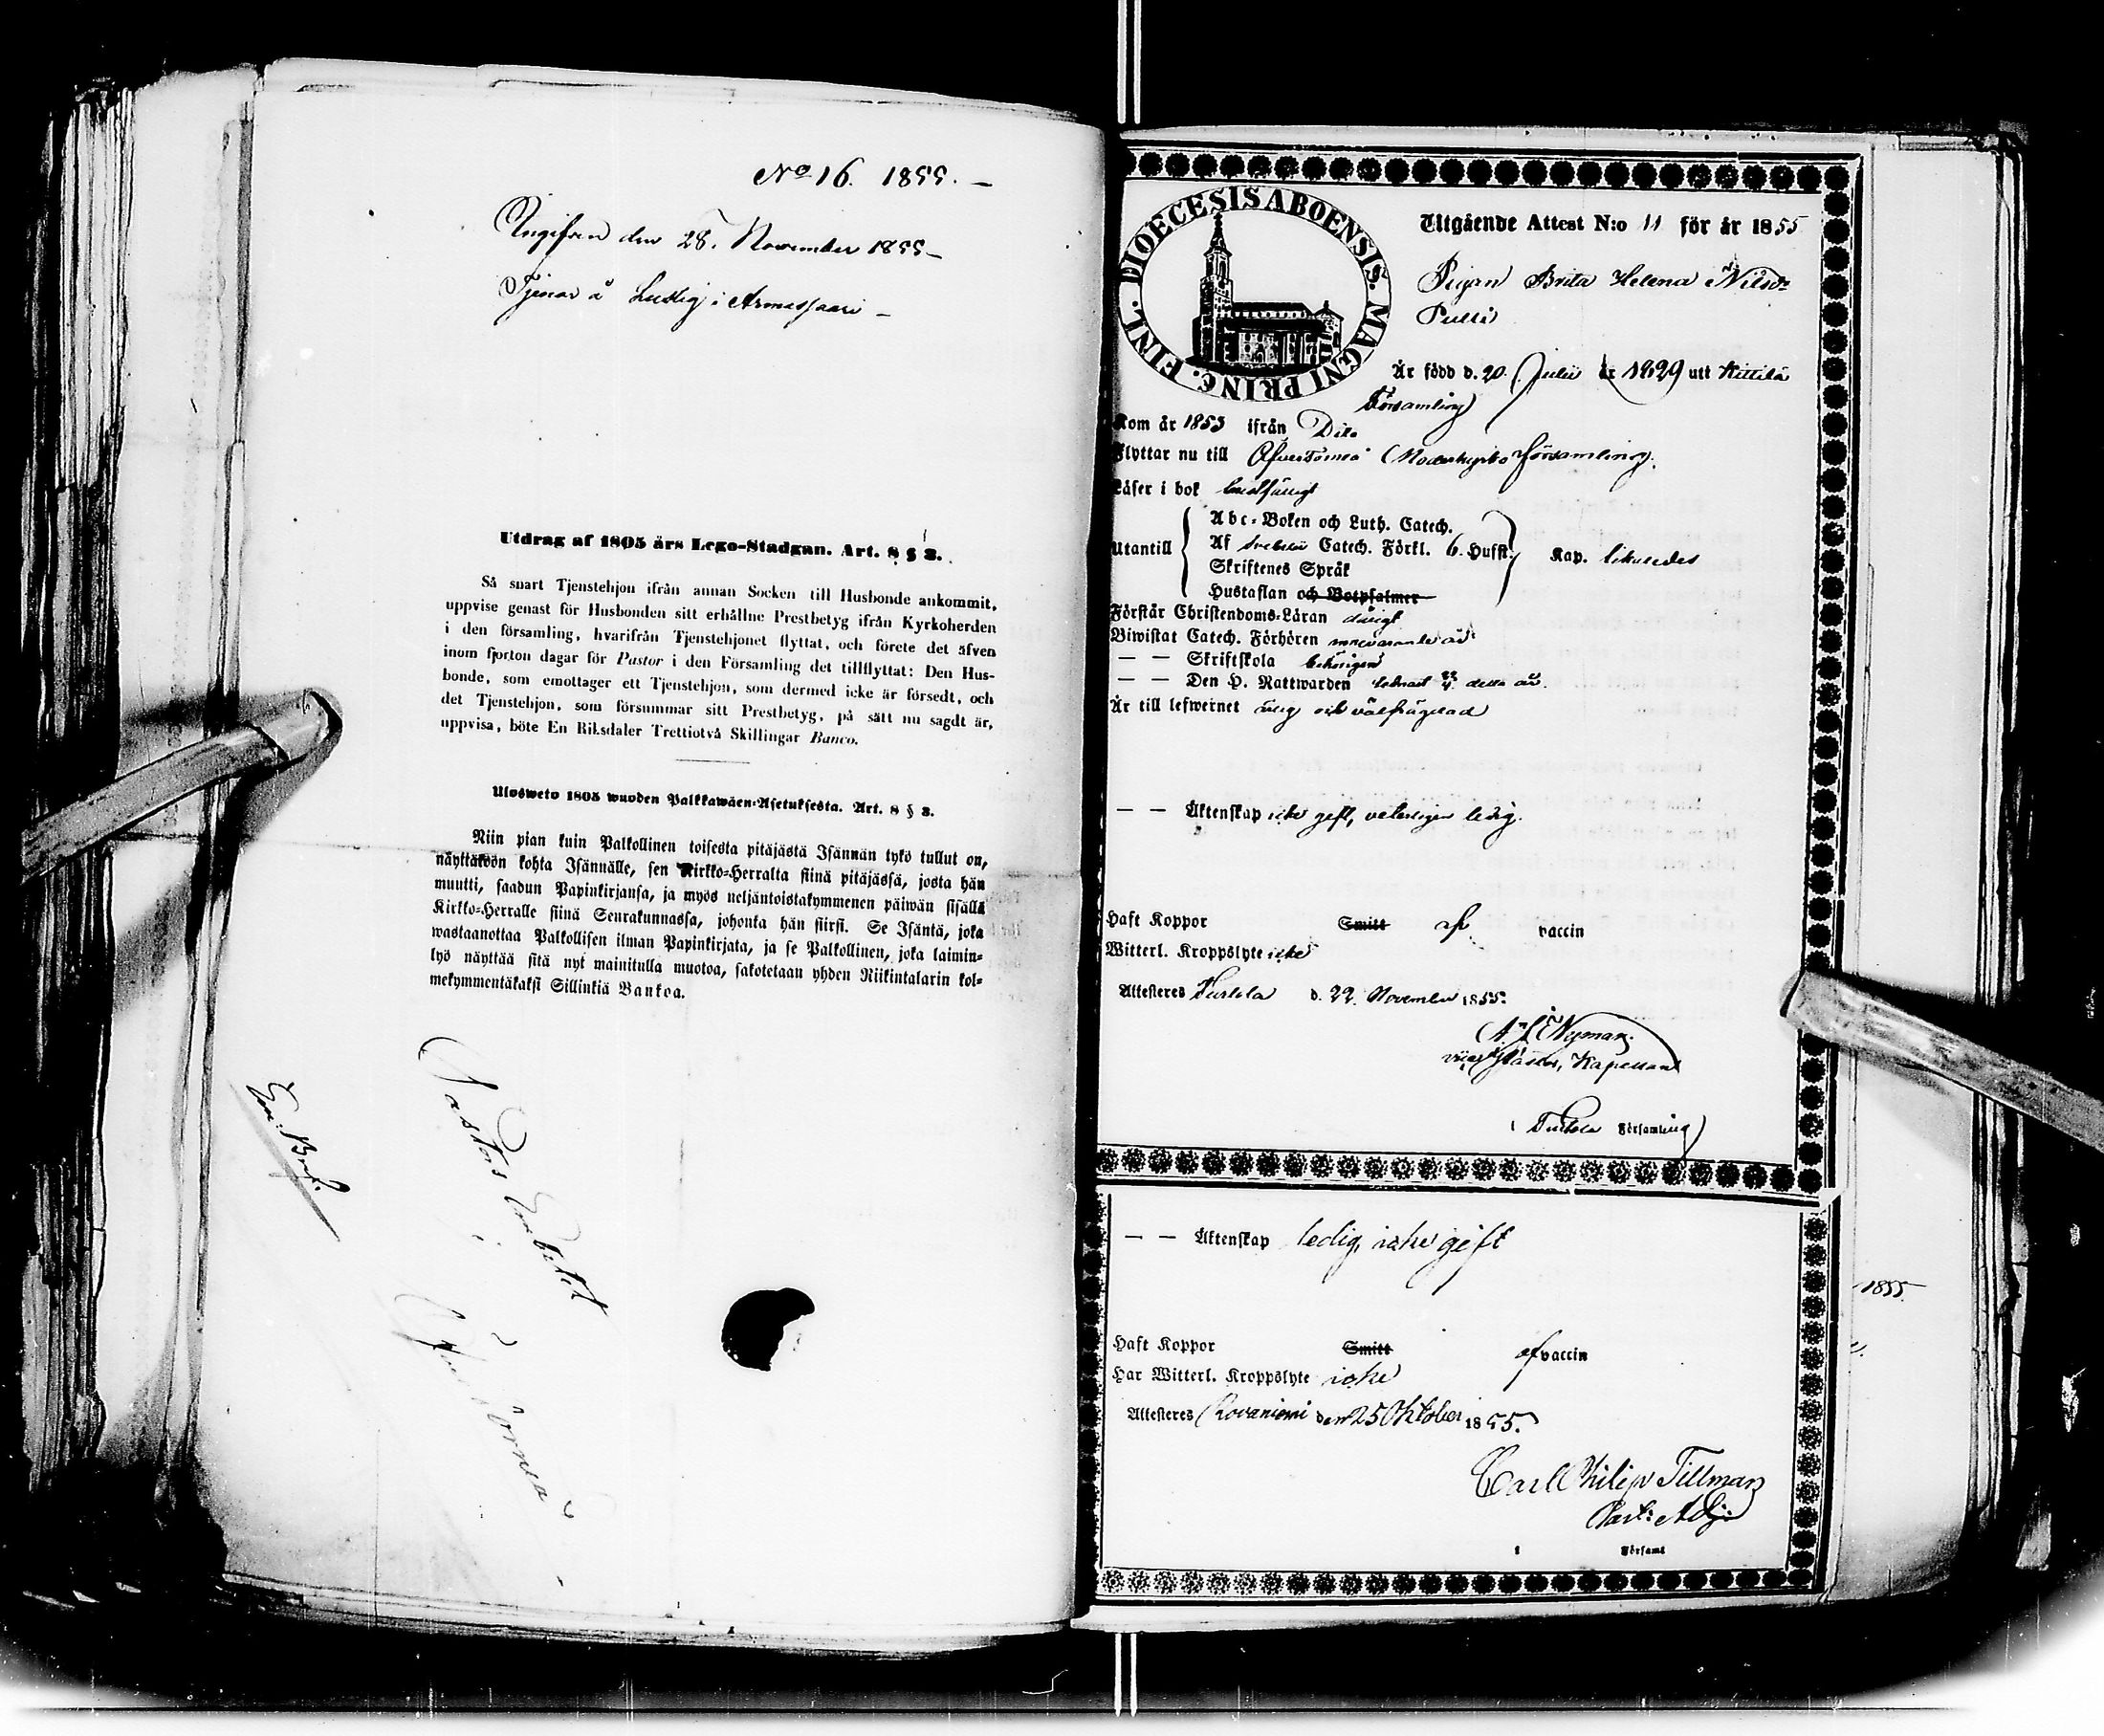 No 16. 1855. —
Ingifven den 28. November 1855 —
Tjenar å Lustig i Armassaari —
Utdrag af 1805 års Lego-Stadgan. Art. 8 § 3.
Så snart Tjenstehjon ifrån annan Socken till Husbonde ankommit,
uppvise genast för Husbonden sitt erhållne Prestbetyg ifrån Kyrkoherden
i den församling, hvarifrån Tjenstehjonet flyttat, och förete det äfven
inom fjorton dagar för Pastor i den Församling det tillflyttat: Den Hus-
bonde, som emottager ett Tjenstehjon, som dermed icke är försedt, och
det Tjenstehjon, som försummar sitt Prestbetyg, på sätt nu sagdt är,
uppvisa, böte En Riksdaler Trettiotvå Skillingar Banco.
Ulosweto 1805 wuoden Palkkawäen-Asetuksesta. Art. 8 § 3.
Niin pian kuin Palkollinen toisesta pitäjästä Isännän tykö tullut on,
näyttäköön kohta Isännälle, sen Kirkko-Herralta siinä pitäjässä, josta hän
muutti, saadun Papinkirjansa, ja myös neljäntoistakymmenen päiwän sisällä
Kirkko-Herralle siinä Seurakunnassa, johonka hän siirsi. Se Isäntä, joka
wastaanottaa Palkollisen ilman Papinkirjata, ja se Palkollinen, joka laimin-
lyö näyttää sitä nyt mainitulla muotoa, sakotetaan yhden Riikintalarin kol-
mekymmentäkaksi Sillinkiä Bankoa.
Pastors Embetet
i
Öfver Torneå
Em. Bref.
FINL. DIOECESIS ABOENSIS. MAGNI PRINC.
Utgående Attest N:o 11 för år 1855
Pigan Brita Helena Nilsd:
Pulli
Är född d. 20 Julii år 1829 utt Kittilä
Församling
Kom år 1853 ifrån Dito
Flyttar nu till Öfvertorneå Moderkyrko församling.
Läser i bok
Utantill
Abc-Boken och Luth. Catech.
Af Svebilii Catech. Förkl. 6. Hufst.
Skriftenes Språk
Hustaflan och Botpsalmer
Kap. likaledes
Förstår Christendoms-Läran
Biwistat Catech. Förhören innevarande år
— — Skriftskola behörigen
— — Den H. Nattwarden detta år.
Är till lefwernet ärlig och välfrägdad
— — Äktenskap icke gift, veterligen ledig.
Haft Koppor Smitt af vaccin
Witterl. Kroppslyte icke
Attesteres Turtola d. 22 November 1855.
Nyman
vice Pastor, Kapellan
i Turtola Församling
— — Äktenskap ledig, icke gift
Haft Koppor Smitt af vaccin
Har Witterl. Kroppslyte icke
Attesteres Rovaniemi den 25 Oktober 1855.
Carl Philip Tillman
Past: Adj:
i Församl
1855.